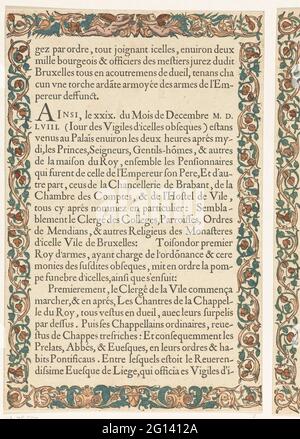 gez par ordre, tout joignant icelles, enuiron deux
mille bourgeois & officiers des mestiers jurez dudit
Bruxelles tous en acoutremens de dueil, tenans cha
cun vne torche ardãte armoyée des armes de l'Em-
pereur deffunct.
AINSI, le xxix. du Mois de Decembre M. D.
LVIII. (Iour des Vigiles d'icelles obseques) estans
venus au Palais enuiron les deux heures aprés my-
dy, les Princes, Seigneurs, Gentils-hõmes, & autres
de la maison du Roy, ensemble les Pensionnaires
qui furent de celle de l'Empereur son Pere, Et d'au-
tre part, ceus de la Chancellerie de Brabant, de la
Chambre des Comptes, & de l'Hostel de Vile,
tous cy aprés nommez en particulier: Sembla-
blement le Clergé des Colleges, Parroisses, Ordres
de Mendians, & autres Religieus des Monasteres
d'icelle Vile de Bruxelles: Toisondor premier
Roy d'armes, ayant charge de l'ordõnance & cere
monies des susdites obseques, mit en ordre la pom-
pe funebre d'icelles, ainsi que s'ensuit:
Premierement, le Clergé de la Vile commença
marcher, & en aprés, Les Chantres de la Chappel-
le du Roy, tous vestus en dueil, auec leurs surpelis
par dessus. Puis ses Chappellains ordinaires, reue-
stus de Chappes tresriches: Et consequemment les
Prelats, Abbés, & Euesques, en leurs ordres & ha-
bits Pontificaus. Entre lesquels estoit le Reueren-
dissime Euesque de Liege, qui officia es Vigiles d'i-
2G1412A